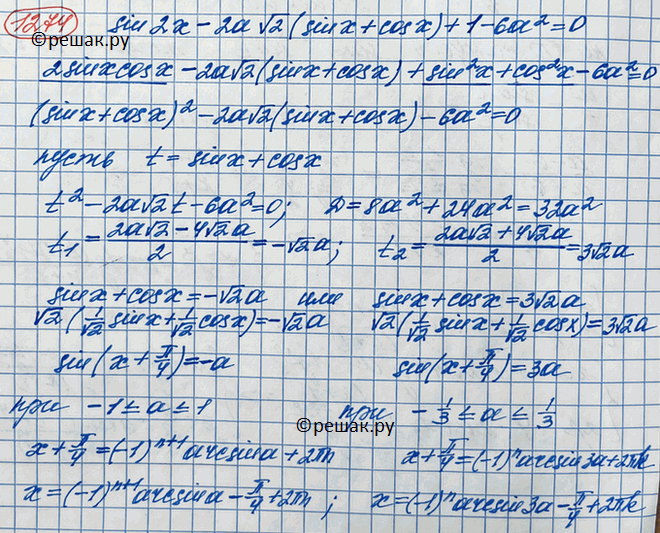 1274 sin 2x - 2a√2 (sin x + cos x) + 1 - 6a² = 0
©решак.ру
2 sin x cos x - 2a√2 (sin x + cos x) + sin² x + cos² x - 6a² = 0
(sin x + cos x)² - 2a√2 (sin x + cos x) - 6a² = 0
пусть t = sin x + cos x
t² - 2a√2 t - 6a² = 0; D = 8a² + 24a² = 32a²
t₁ = (2a√2 - 4√2a)/2 = -√2a; t₂ = (2a√2 + 4√2a)/2 = 3√2a
sin x + cos x = -√2a или sin x + cos x = 3√2a
√2 (1/√2 sin x + 1/√2 cos x) = -√2a √2 (1/√2 sin x + 1/√2 cos x) = 3√2a
sin (x + π/4) = -a sin (x + π/4) = 3a
при -1 ≤ a ≤ 1 при -1/3 ≤ a ≤ 1/3
©решак.ру
x + π/4 = (-1)ⁿ⁺¹ arcsin a + 2πn x + π/4 = (-1)ⁿ arcsin 3a + 2πk
x = (-1)ⁿ⁺¹ arcsin a - π/4 + 2πn; x = (-1)ⁿ arcsin 3a - π/4 + 2πk